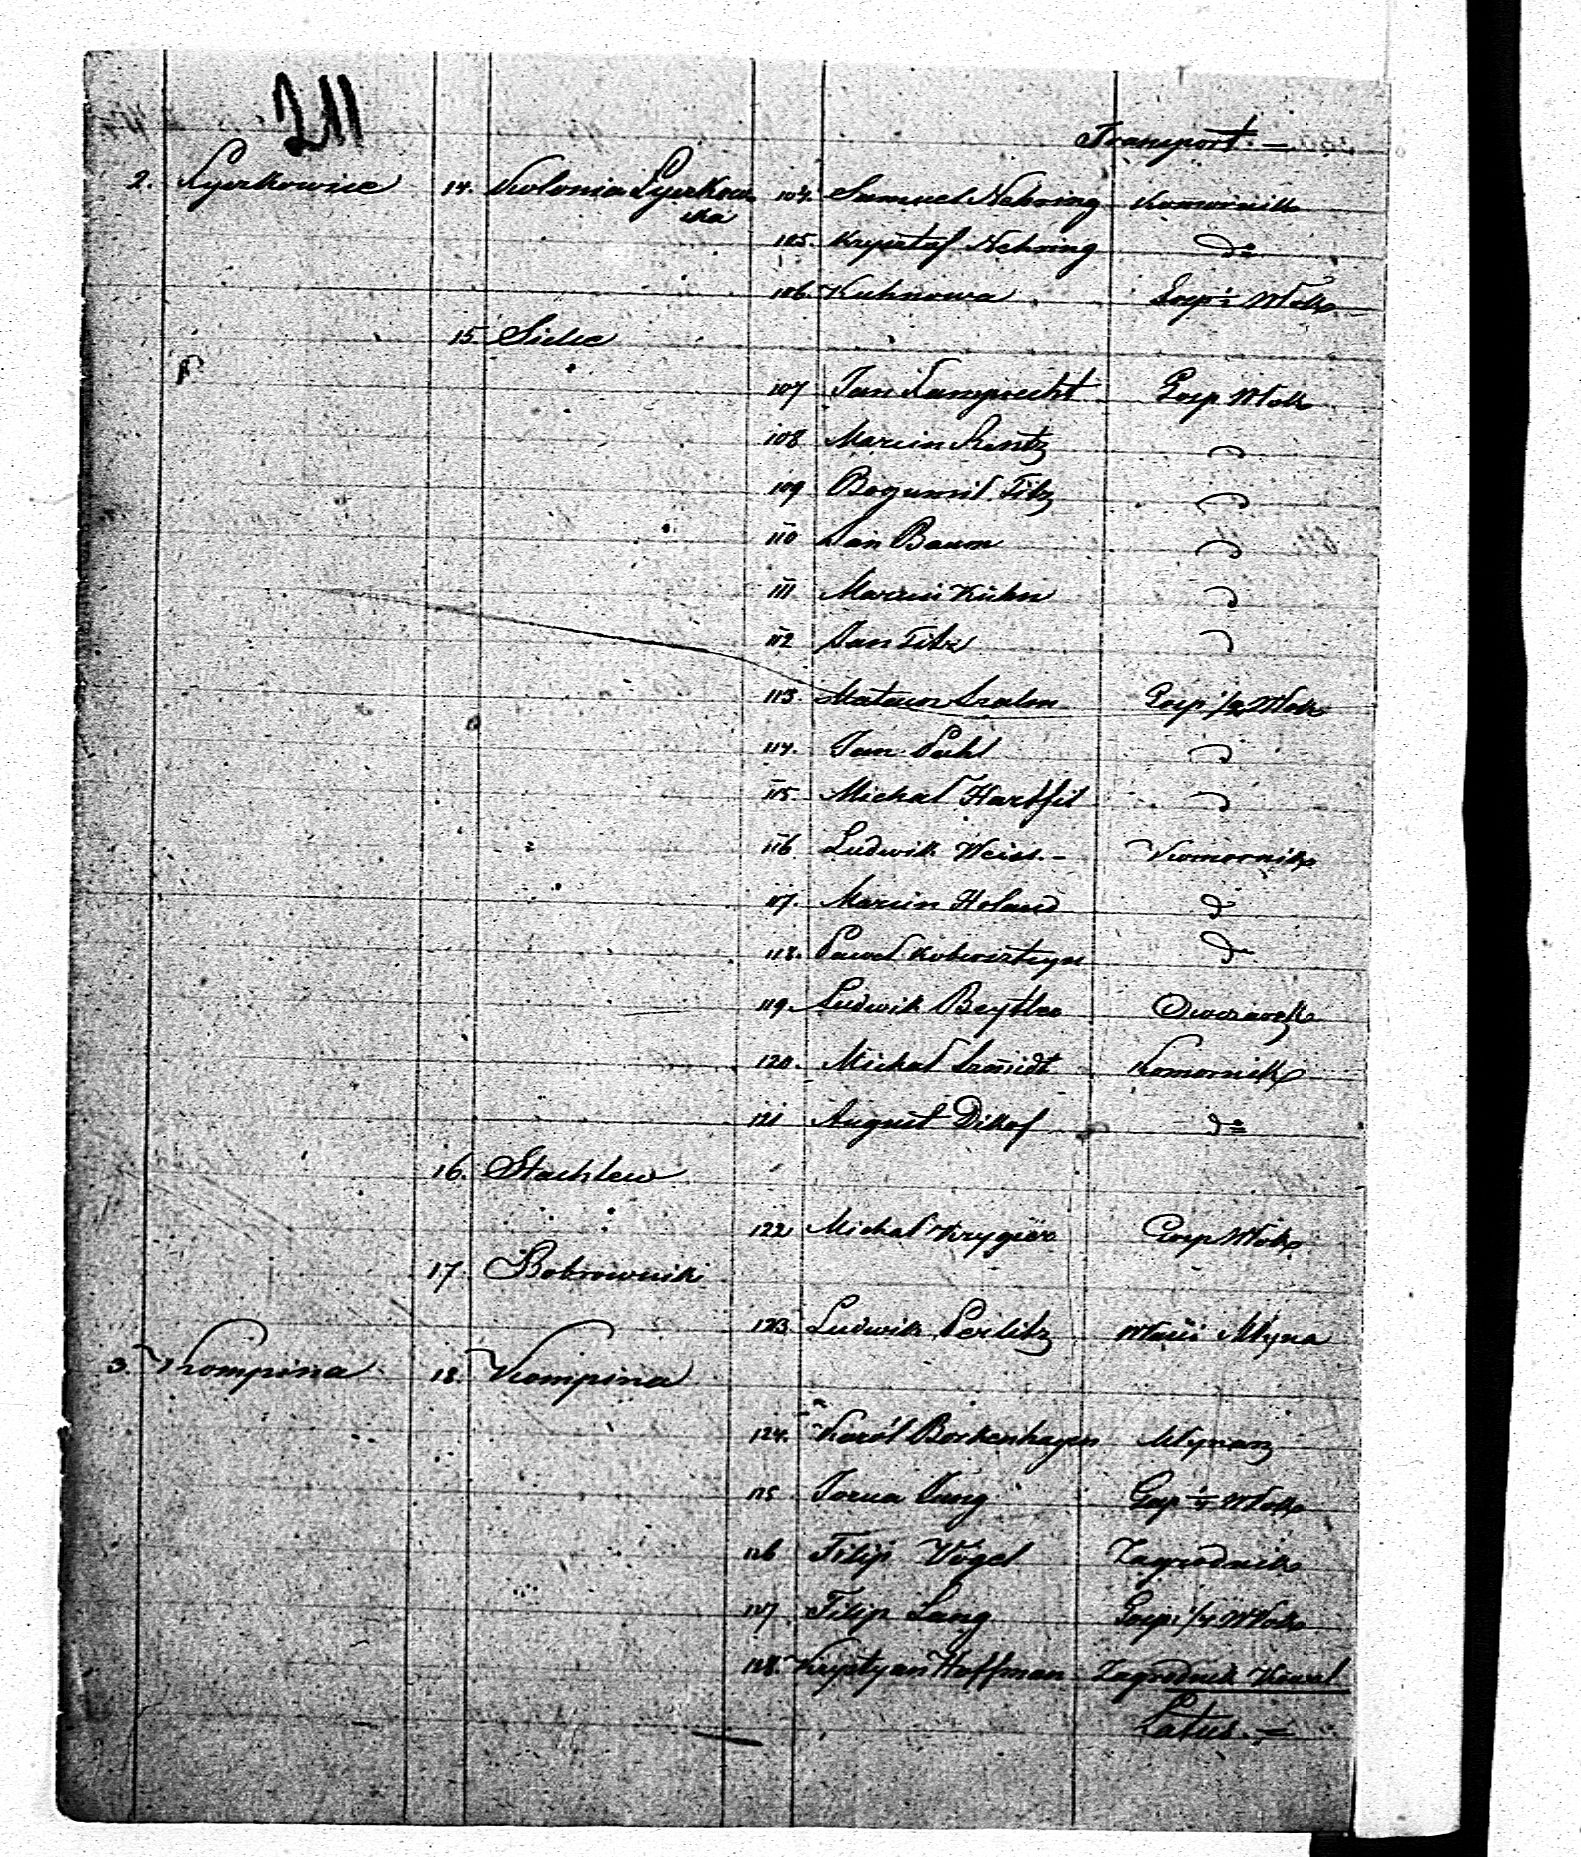 211
Transport. =
2. Łyszkowice 14. Kolonia Łyszkow 104. Samuel Nehring Komornik
ska
105. Krysztof Nehring do
106. Kuhnowa Gosp ½ Włók
15 Sielce
107 Jan Lamprecht Gosp Włók
108 Marcin Rentz "
109 Bogumił Titz "
110 Jan Baum "
111 Marcin Kühn "
112 Jan Titz "
113. Mateusz Szalon Gosp ½ Włók
114. Jan Pahl "
115. Michał Hartfil "
116 Ludwik Weiss. - Komornik
117. Marcin Holand do
118. Paweł do
119. Ludwik Beytler Dworak
120. Michał Szmidt Komornik
121 August Dikof do
16. Stachlew
122 Michał Krygier Gosp Włók
17. Bobrowniki
123. Ludwik Perlitz Młyna
3. Kompina 18. Kompina
124. Karól Borkenhagen Młynarz
125 Jung Gosp ¼ Włók
126 Filip Vogel Zagrodnik
127 Filip Lang Gosp ¼ Włók
128. Krystyan Hoffman Zagrodnik Kowal
Latus. =